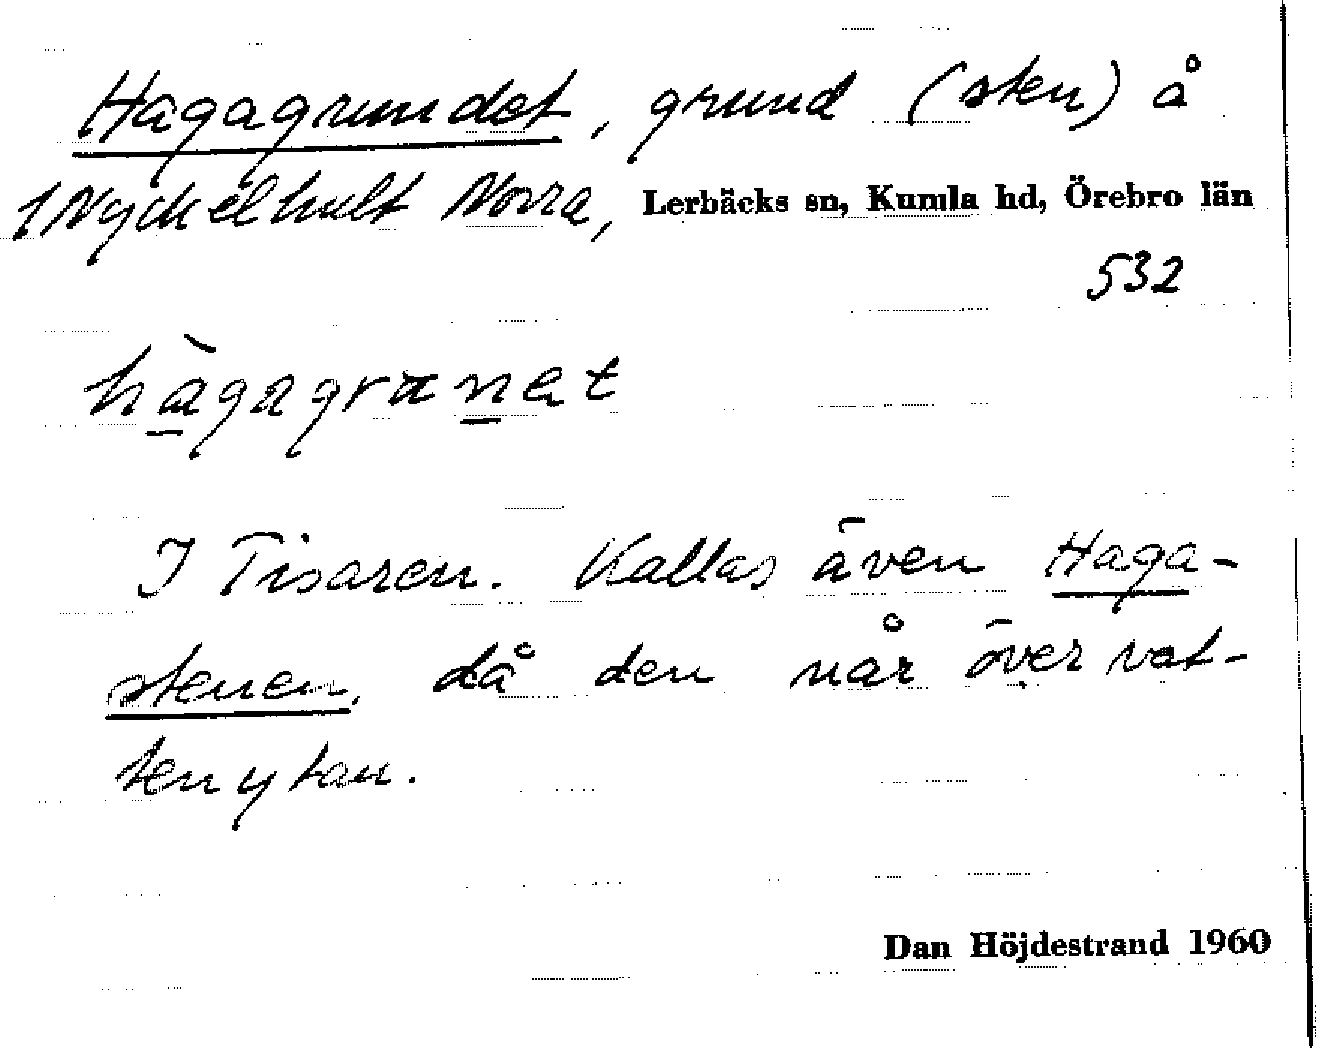 Hagagrundet, grund (sten) å
1 Nyckelhult Norra, Lerbäcks sn, Kumla hd, Örebro län
532
hàgagranet
I Tisaren. Kallas även Haga-
stenen, då den når över vat-
tenytan.
Dan Höjdestrand 1960